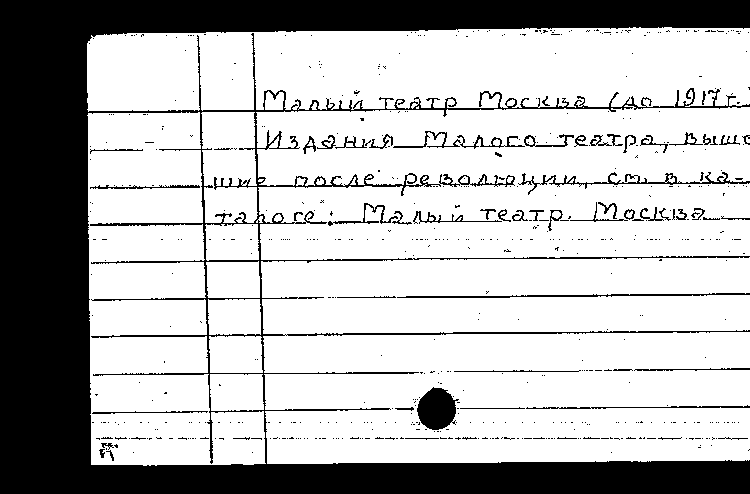 Малый театр Москва (до 1917г.)
Издания Малого театра, вышед
шие после революции, см. в ка-
талоге: Малый театр. Москва